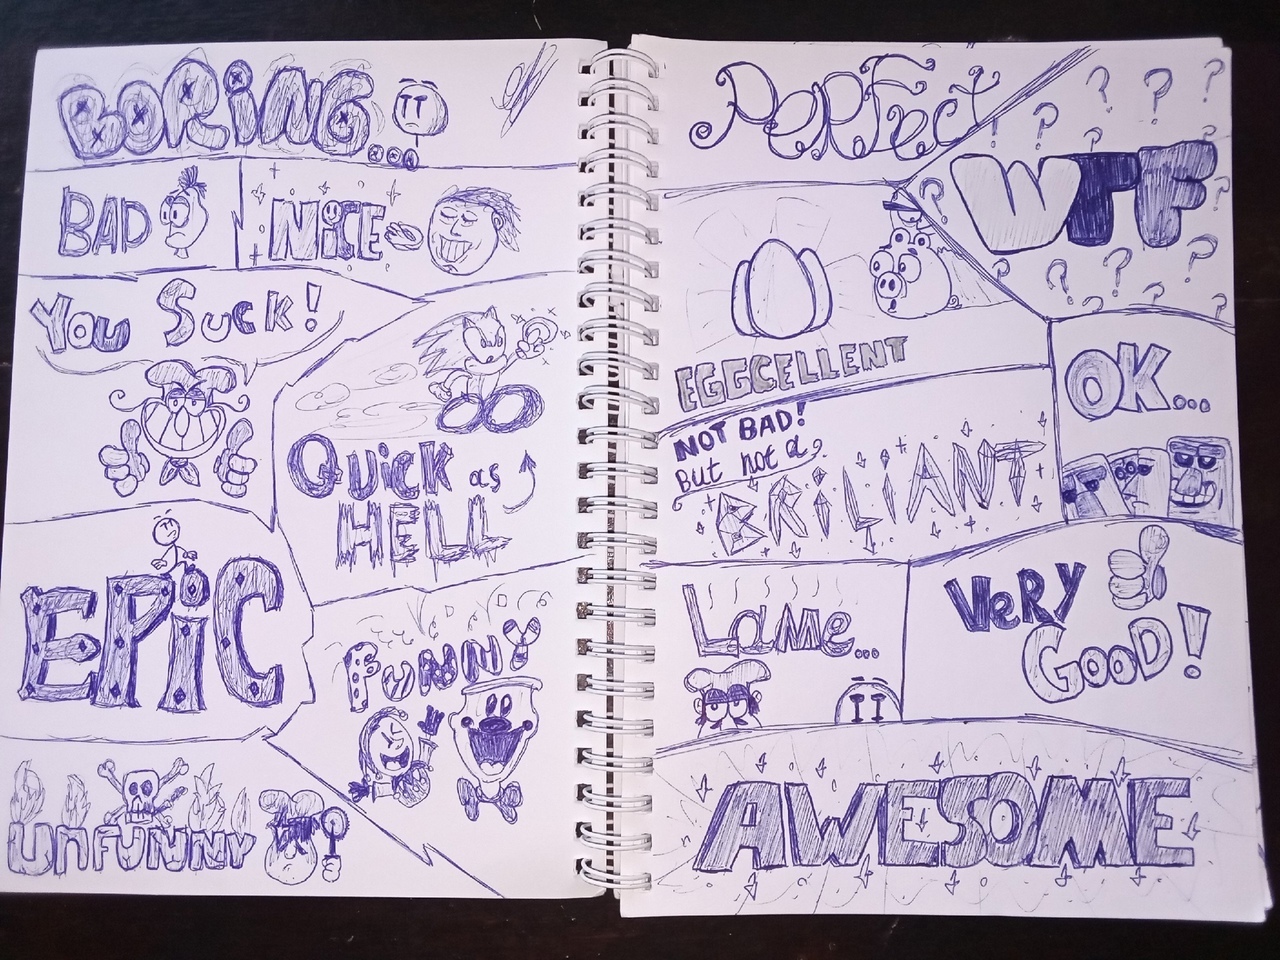 BORiNG...
BAD
NiCE
You Suck!
Quick as
HELL
EPiC
FUNNY
UnFUNNY
PERFect
WTF
? ? ? ? ? ? ? ? ? ? ? ? ?
EGGCELLENT
OK...
NOT BAD!
But not a
BRiLiANT
LaMe...
VeRY
GooD!
AWESOME